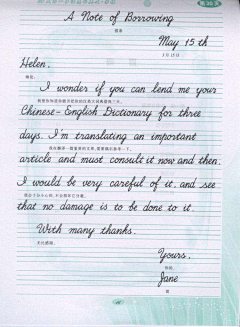 A Note of Borrowing
May 15th
5月15日
Helen,
I wonder if you can lend me your
Chinese-English Dictionary for three
days. I'm translating an important
article and must consult it now and then.
I would be very careful of it, and see
that no damage is to be done to it.
With many thanks.
Yours,
Jane